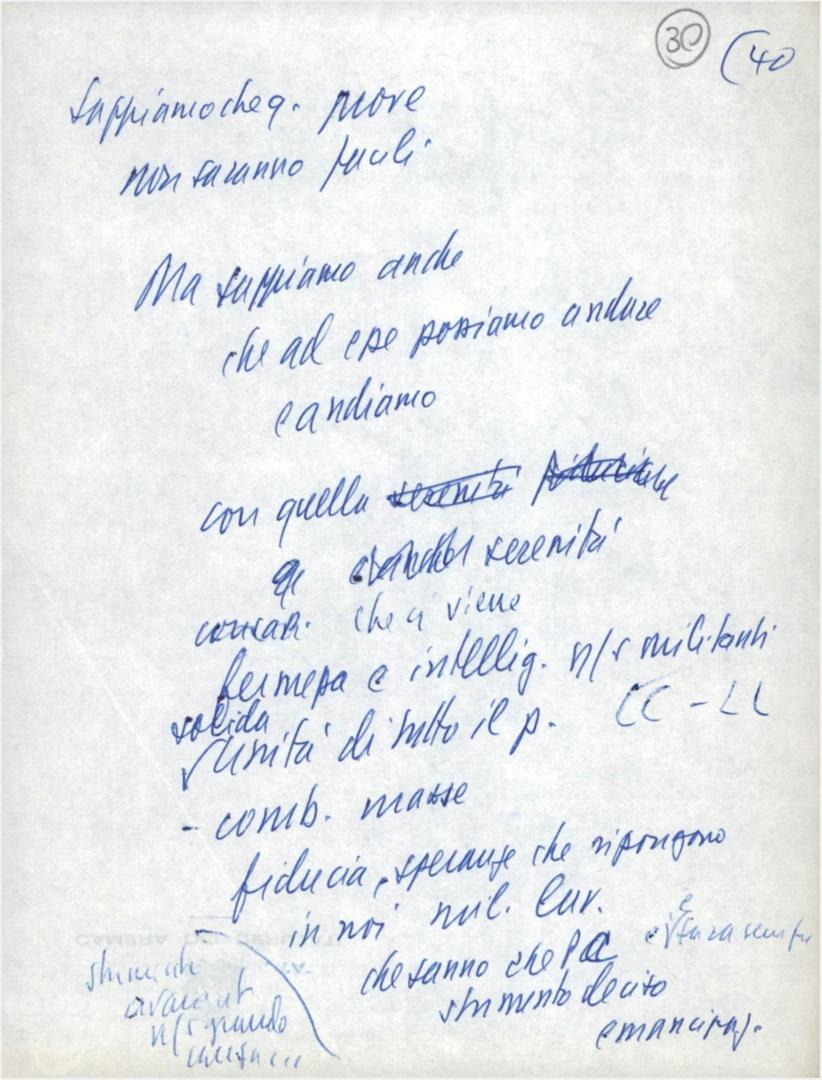 30 (40
Sappiamo che q. prove
non saranno facili
Ma sappiamo anche
che ad esse possiamo andare
e andiamo
con quella serenità
serenità
che ci viene
fermezza e intellig. n/s militanti
CC - LL
solida
unità di tutto il p.
- comb. masse
fiducia, speranze che ripongono
in noi mil. lav.
che sanno che PC è e sarà sempre
strumento deciso
emancipaz.
n/s grande
causa...
CAMERA DEI DEPUTATI